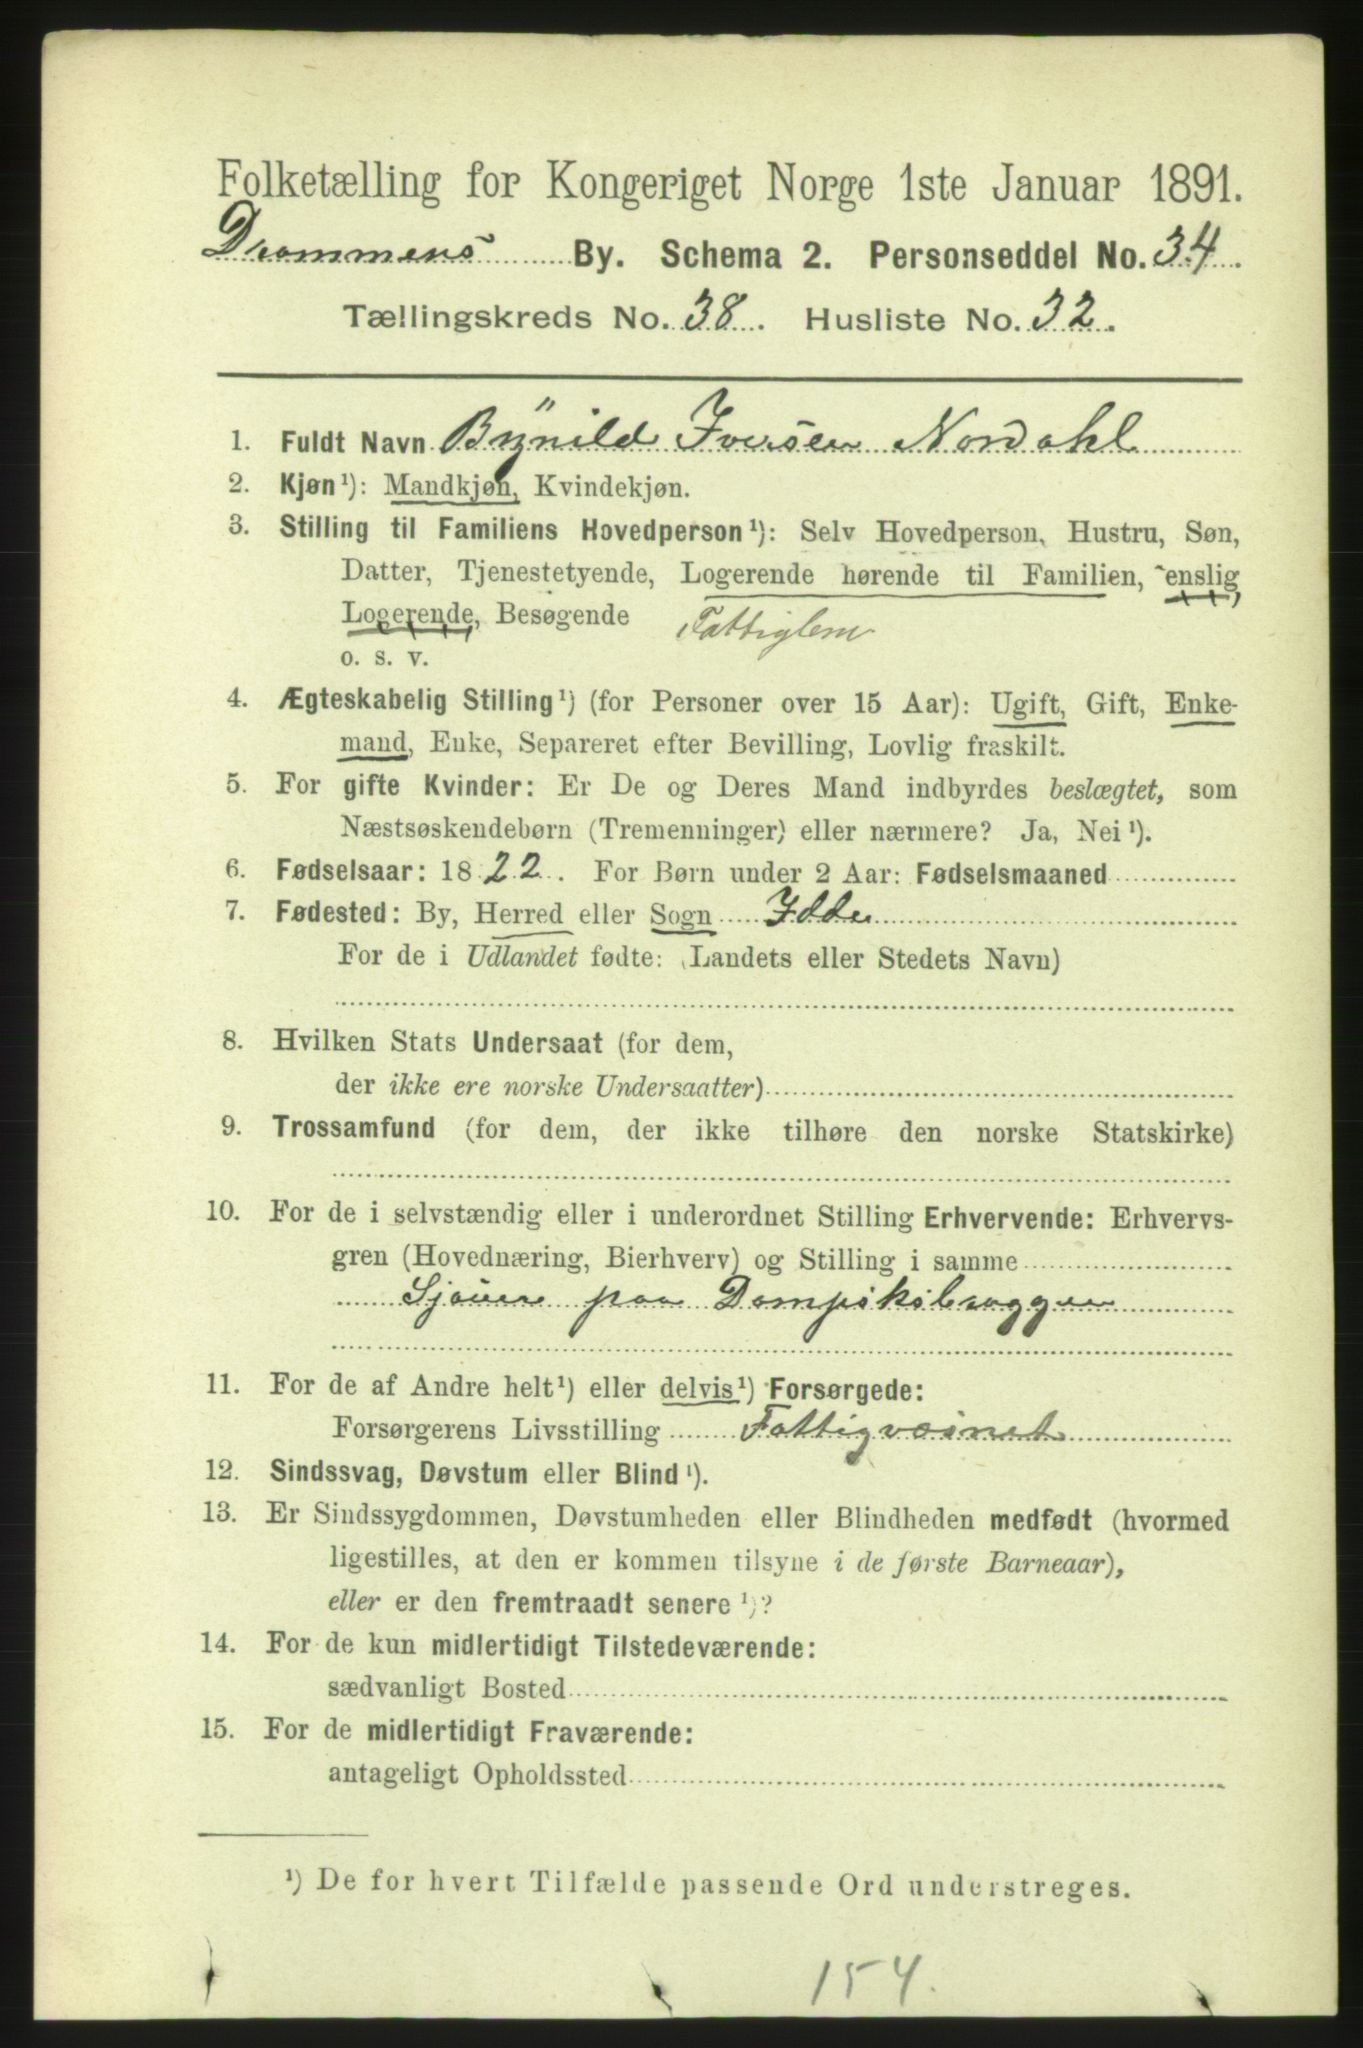 Folketælling for Kongeriget Norge 1ste Januar 1891.
Drammens By. Schema 2. Personseddel No. 34.
Tællingskreds No. 38. Husliste No. 32.
1. Fuldt Navn Bÿnild Iversen Nordahl
2. Kjøn ¹): Mandkjøn, Kvindekjøn.
3. Stilling til Familiens Hovedperson ¹): Selv Hovedperson, Hustru, Søn,
Datter, Tjenestetyende, Logerende hørende til Familien, enslig
Logerende, Besøgende Fattiglem
o. s. v.
4. Ægteskabelig Stilling ¹) (for Personer over 15 Aar): Ugift, Gift, Enke-
mand, Enke, Separeret efter Bevilling, Lovlig fraskilt.
5. For gifte Kvinder: Er De og Deres Mand indbyrdes beslægtet, som
Næstsøskendebørn (Tremenninger) eller nærmere? Ja, Nei ¹).
6. Fødselsaar: 1822. For Børn under 2 Aar: Fødselsmaaned
7. Fødested: By, Herred eller Sogn Idde
For de i Udlandet fødte: (Landets eller Stedets Navn)
8. Hvilken Stats Undersaat (for dem,
der ikke ere norske Undersaatter)
9. Trossamfund (for dem, der ikke tilhøre den norske Statskirke)
10. For de i selvstændig eller i underordnet Stilling Erhvervende: Erhvervs-
gren (Hovednæring, Bierhverv) og Stilling i samme
Sjouer paa Dampskibsbryggen
11. For de af Andre helt ¹) eller delvis ¹) Forsørgede:
Forsørgerens Livsstilling Fattigvæsnet
12. Sindssvag, Døvstum eller Blind ¹).
13. Er Sindssygdommen, Døvstumheden eller Blindheden medfødt (hvormed
ligestilles, at den er kommen tilsyne i de første Barneaar),
eller er den fremtraadt senere ¹)?
14. For de kun midlertidigt Tilstedeværende:
sædvanligt Bosted
15. For de midlertidigt Fraværende:
antageligt Opholdssted
¹) De for hvert Tilfælde passende Ord understreges.
154.